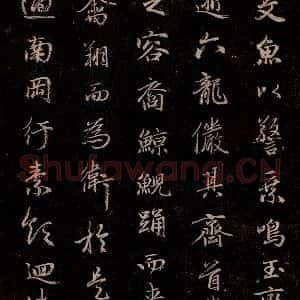 文魚以警乘鳴玉
逝六龍儼其齊首
之容裔鯨鯢踊而夾
禽翔而為衛於是
過南岡紆素領迴清
Shufawang.CN